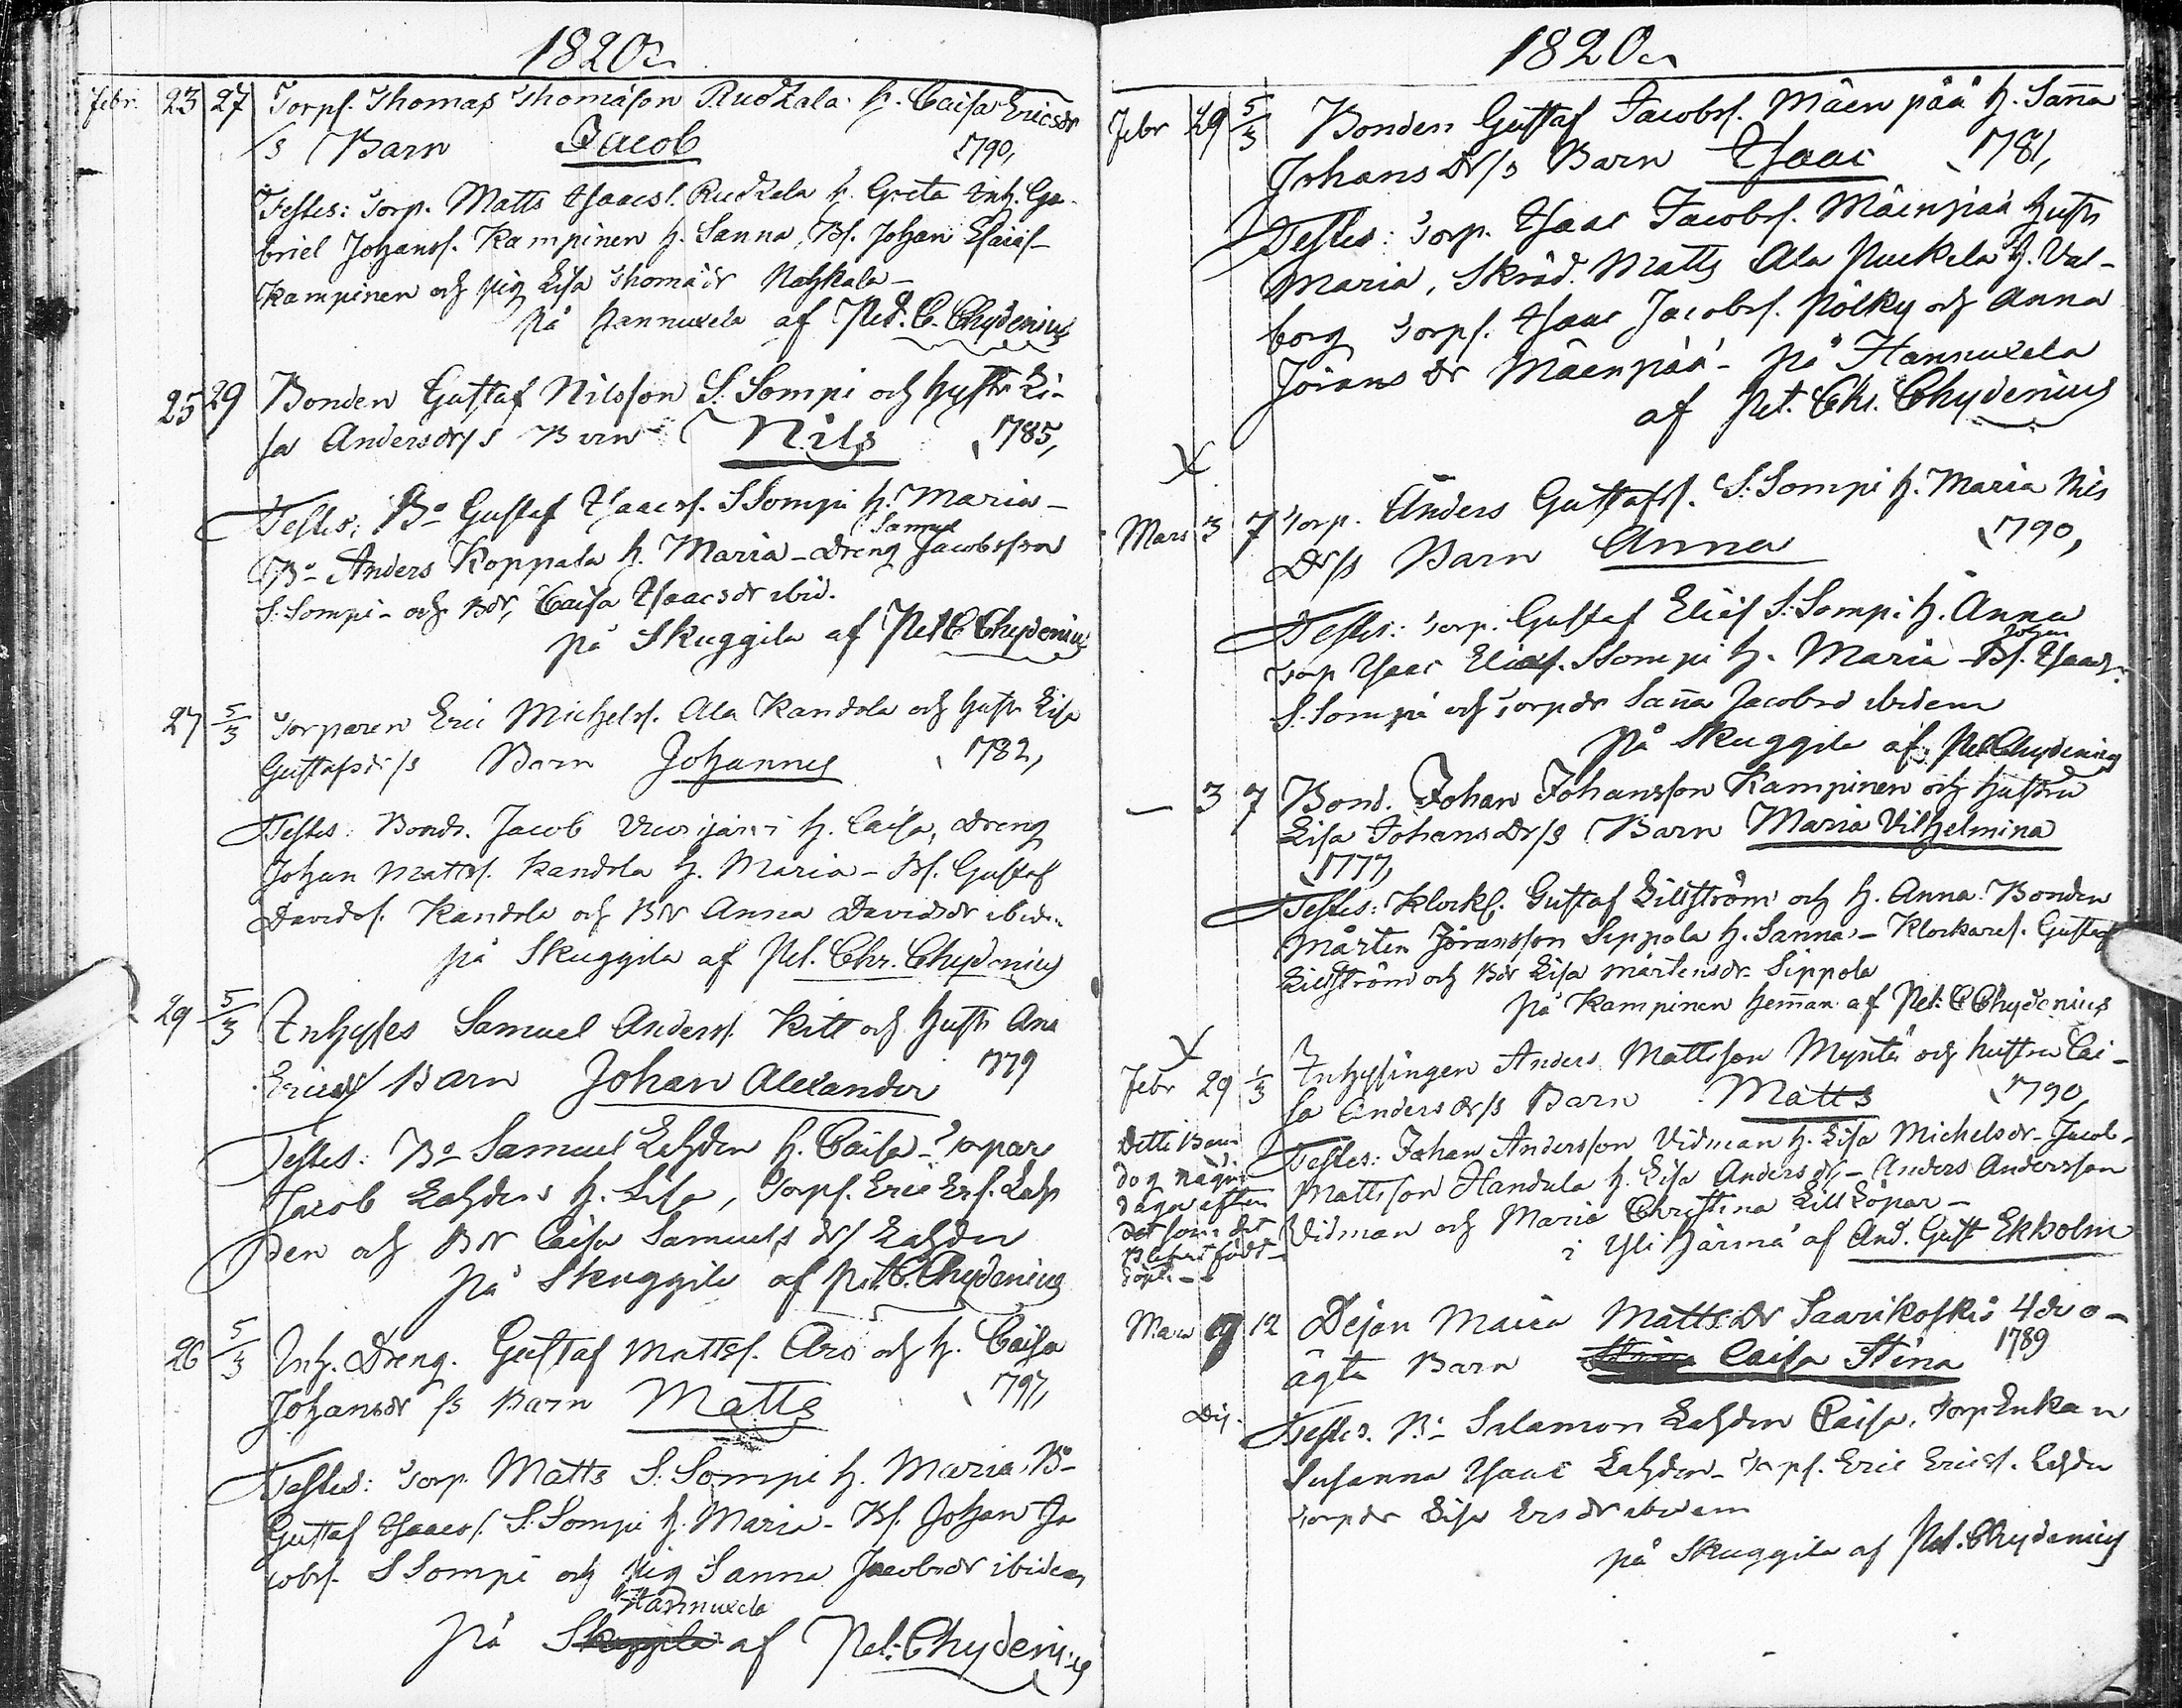 1820
Febr. 23 27 Torps. Thomas Thomasson Rudkala h. Caisa Ericsdr
/s Barn Jacob 1790,
Testes: Torp. Matts Isaacs. Rudkala h. Greta Inh. Ga-
briel Johanss. Kampinen h. Sanna, Bs. Johan Esaiæs-
Kampinen och pig Lisa Thomædr
på Hannuxela af Pet. C. Chydenius
25 29 Bonden Gustaf Nilsson S. Sompi och hustr Li-
sa Andersdr/s Barn Nils 1785,
Testes: Bo Gustaf Isaacss. S Sompi h. Maria-
Samuel
Bo- Anders Koppala h. Maria - Dreng Jacobsson
S. Sompi - och Bdr, Caisa Isaacsdr ibid.
på Skuggila af Pet C Chydenius
27 5/3 Torparen Eric Michelss. Ala Kandola och hustr Lisa
Gustafsdr/s Barn Johannes 1782,
Testes: Bond. Jacob h. Caisa, Dreng
Johan Mattss. Kandola h. Maria - Bs. Gustaf
Davidss. Kandola och Bdr Anna Davidsdr ibidem
på Skuggila af Pet. Chr. Chydenius
29 5/3 Inhyses Samuel Anderss. Kitt och hustr Ana
Ericsdr/ Barn Johan Alexander 1779
Testes: Bo- Samuel Lahden h. Caisa - Torpar
Jacob Lahdens h. Lisa, Torps. Eric Ers. Lah
den och Bdr Caisa Samuels dr/ Lahden
på Skuggila af Pet C. Chydenius
26 5/3 Inh. Dreng. Gustaf Mattss. Aro och h. Caisa
Johansdr /s Barn Matts 1797,
Testes: Torp. Matts S. Sompi h. Maria, Bo-
Gustaf Isaacs. S. Sompi h. Maria - Bs. Johan Ja
cobss. S Sompi och Pig Sanna Jacobsdr ibidem
Hannuxela
på Skuggila af Pet. Chydenius
1820
Febr 29 5/3 Bonden Gustaf Jacobs. Mäenpää h. Sanna
Johans Dr/s Barn Isaac 1781,
Testes: Torp. Isaac Jacobss. Mäenpää hustr
Maria, Skräd. Matts Ala Puckila h. Val-
borg Torps. Isaac Jacobss. Pölky och Anna
Jörans dr Mäenpää - på Hannuxela
af Pet. Chr. Chydenius
Mars 3 7 Torp. Anders Gustafss. S. Sompi h. Maria Nils
Dr/s Barn Anna 1790,
Testes: Torp. Gustaf Eliæs S. Sompi h. Anna
Johan
Torp Isaac Eliæs. S Sompi h. Maria - Bs. Isaacs.
S. Sompi och Torpdr Sanna Jacobsd ibidem
på Skuggila af Pet Chydenius
- 3 7 Bond. Johan Johansson Kampinen och hustru
Lisa JohansDr/s Barn Maria Vilhelmina
1777,
Testes: Klock. Gustaf Lillström och h. Anna Bonden
Mårten Jöransson Sippola h. Sanna - Klockares. Gustaf
Lillström och Bdr Lisa Mårtensdr Sippola
på Kampinen hemman af Pet. C Chydenius
Febr 29 1/3 Inhysingen Anders Mattsson Mynti och hustru Cai-
sa Andersdr/s Barn Matts 1790,
Detta Barn
dog några
dagar efter
det som det
blifvit född
döpt -
Testes: Johan Andersson Vidman h. Lisa Michelsdr - Jacob
Mattsson Handula h. Lisa Anders dr - Anders Andersson
Vidman och Maria Christina Lillköpar -
i Yli Härmä af And. Gust Ekholm
Mars 9 12 Dejan Maria Mattsdr Saarikoskis 4de o-
ägta Barn Caisa Stina 1789
Dij.
Testes. Bo Salamon Lahden Caisa, Torp Enkan
Susanna Isaac Lahden - Torps. Eric Ericss. Lahden
Torpdr Lisa Ersdr ibidem
på Skuggila af Pet. Chydenius